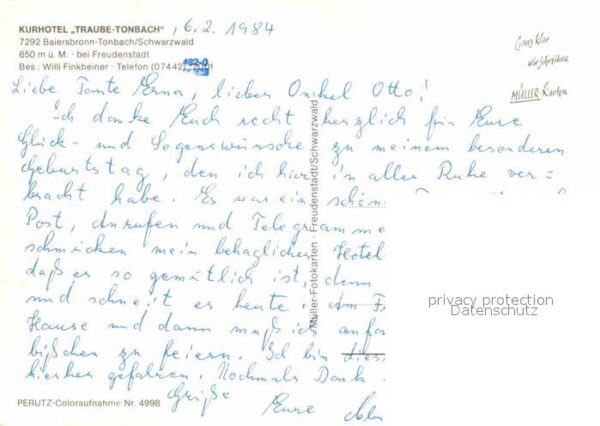 KURHOTEL „TRAUBE-TONBACH“, 6.2.1984
7292 Baiersbronn-Tonbach/Schwarzwald
650 m ü. M. · bei Freudenstadt
Bes.: Willi Finkbeiner · Telefon (07442)
Ganz klar
wir schreiben
MÜLLER-Karten
Liebe Tante Erna, lieber Onkel Otto!
Ich danke Euch recht herzlich für Eure
Glück- und Segenswünsche zu meinem besonderen
Geburtstag, den ich hier in aller Ruhe ver=
bracht habe. Es war ein schön
Post, Anrufen und Telegramme
schmücken mein behagliches Hotel
daß es so gemütlich ist, denn
und schneit es heute. Am F
Hause und dann muß ich anfa
bißchen zu feiern. Ich bin dies
hierher gefahren. Nochmals Dank
Grüße Eure
Müller-Fotokarten · Freudenstadt/Schwarzwald
privacy protection
Datenschutz
PERUTZ-Coloraufnahme Nr. 4998